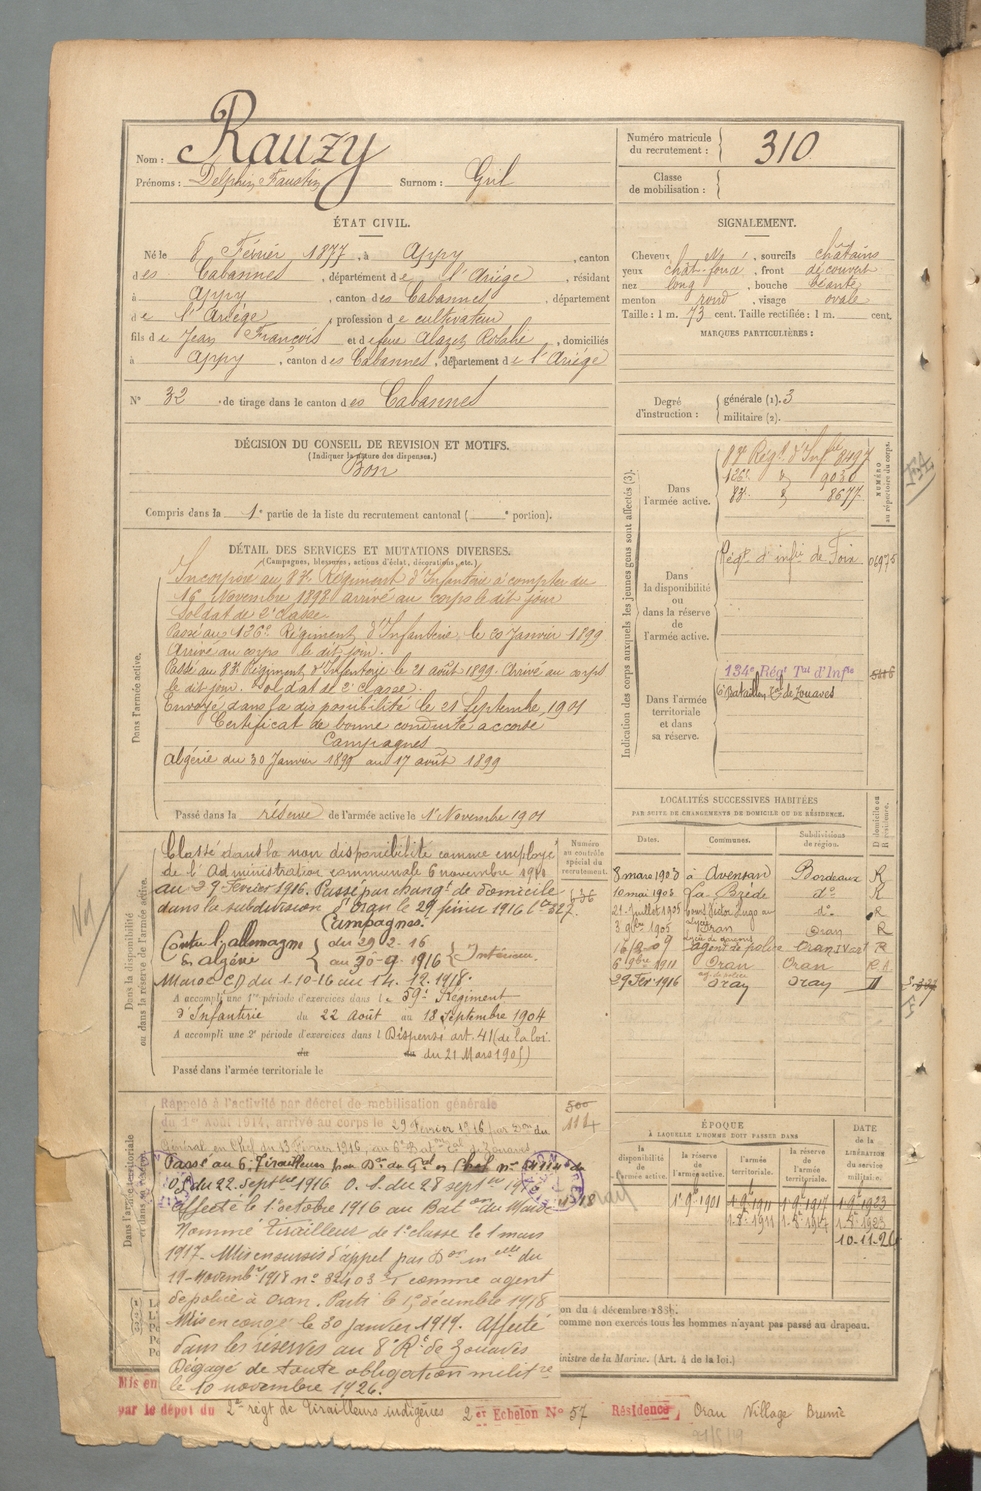 Nom : Rauzy
Prénoms : Delphin Faustin Surnom : Gril
Numéro matricule du recrutement : 310
Classe de mobilisation :
ÉTAT CIVIL.
Né le 8 Février 1877, à Appy, canton
des Cabannes, département de l'Ariège, résidant
à Appy, canton des Cabannes, département
de l'Ariège, profession de cultivateur
fils de Jean François et de feue Alazet Rosalie, domiciliés
à Appy, canton des Cabannes, département de l'Ariège
N° 32 de tirage dans le canton des Cabannes
SIGNALEMENT.
Cheveux, sourcils châtains
yeux chât-foncé, front découvert
nez long, bouche béante
menton rond, visage ovale
Taille : 1 m. 73 cent. Taille rectifiée : 1 m. cent.
MARQUES PARTICULIÈRES :
Degré d'instruction : générale (1). 3
militaire (2).
DÉCISION DU CONSEIL DE REVISION ET MOTIFS.
(Indiquer la nature des dispenses.)
Bon
Compris dans la 1e partie de la liste du recrutement cantonal ( e portion).
DÉTAIL DES SERVICES ET MUTATIONS DIVERSES.
(Campagnes, blessures, actions d'éclat, décorations, etc.)
Dans l'armée active.
Incorporé au 83e Régiment d'Infanterie à compter du
16 Novembre 1898 arrivé au corps le dit jour
Soldat de 2e classe
Passé au 126e Régiment d'Infanterie, le 20 Janvier 1899
Arrivé au corps le dit jour.
Passé au 83e Régiment d'Infanterie le 21 août 1899. Arrivé au corps
le dit jour. Soldat de 2e classe.
Envoyé dans la disponibilité le 21 Septembre 1901
Certificat de bonne conduite accordé
Campagnes
Algérie du 30 Janvier 1899 au 17 août 1899
Passé dans la réserve de l'armée active le 1er Novembre 1901
Indication des corps auxquels les jeunes gens sont affectés (3).
Dans l'armée active.
83e Régt d'Infrie 8497
126e d° 9030
83e d° 8677
NUMÉRO au répertoire du corps.
Dans la disponibilité ou dans la réserve de l'armée active.
Régt d'infie de Foix 04975
Dans l'armée territoriale et dans sa réserve.
134e Régt Tal d'Infie
6e Bataillon Tal de Zouaves
LOCALITÉS SUCCESSIVES HABITÉES
PAR SUITE DE CHANGEMENTS DE DOMICILE OU DE RÉSIDENCE.
Dates. Communes. Subdivisions de région. Domicile ou Résidence.
8 mars 1903 à Avensan Bordeaux R
10 mai 1905 La Brède d° R
21 Juillet 1905 Cours Victor Hugo d° R
3 9bre 1905 Oran Oran R
agent de police Oran R
6 9bre 1911 Oran Oran
29 Fév. 1916 Oran Oran
Dans la disponibilité ou dans la réserve de l'armée active.
Numéro au contrôle spécial du recrutement.
Classé dans la non disponibilité comme employé
de l'Administration communale 6 novembre
au 29 Février 1916. Passé par changt de domicile
dans la subdivision d'Oran le 29 février 1916
Campagnes.
Contre l'allemagne
En algérie
du 29-2-16
au 30-9-1916
Intérieur.
Maroc CD du 1.10-16 au 14.12.1918.
A accompli une 1re période d'exercices dans le 59e Régiment
d'Infanterie du 22 Août au 18 Septembre 1904
A accompli une 2e période d'exercices dans l Dispensé art. 41 (de la loi
du 21 Mars 1905)
Passé dans l'armée territoriale le
Dans l'armée territoriale
Rappelé à l'activité par décret de mobilisation générale
du 1er Août 1914, arrivé au corps le 29 Février 1916 par Don du
Général en Chef du 13 Février 1916, au 6e Baton Tal de Zouaves
Passé au 6e Tirailleurs par Don du Gal en Chef
du 22 septre 1916 O. 1. du 28 septre
Affecté le 1er octobre 1916 au Baton du Maroc
Nommé Tirailleur de 1e classe le 1 mars
1917. Mis en sursis d'appel par Don melle du
19 Novembre 1918 n° 32403 comme agent
de police à Oran. Parti le 15 décembre 1918
Mis en congé le 30 janvier 1919. Affecté
dans les réserves au 8e Rt de Zouaves
Dégagé de toute obligation militre
le 10 novembre 1926.
500
114
ÉPOQUE
À LAQUELLE L'HOMME DOIT PASSER DANS
la disponibilité de l'armée active. la réserve de l'armée active. l'armée territoriale. la réserve de l'armée territoriale.
DATE de la LIBÉRATION du service militaire.
1er 9bre 1901 1er 9bre 1911 1er 9bre 1917 1er 9bre 1923
10-11-26
comme non exercés tous les hommes n'ayant pas passé au drapeau.
ministre de la Marine. (Art. 4 de la loi.)
Mis en
par le dépôt du 2e régt de Tirailleurs indigènes 2 et Echelon N° 57 Résidence Oran Village Brunie